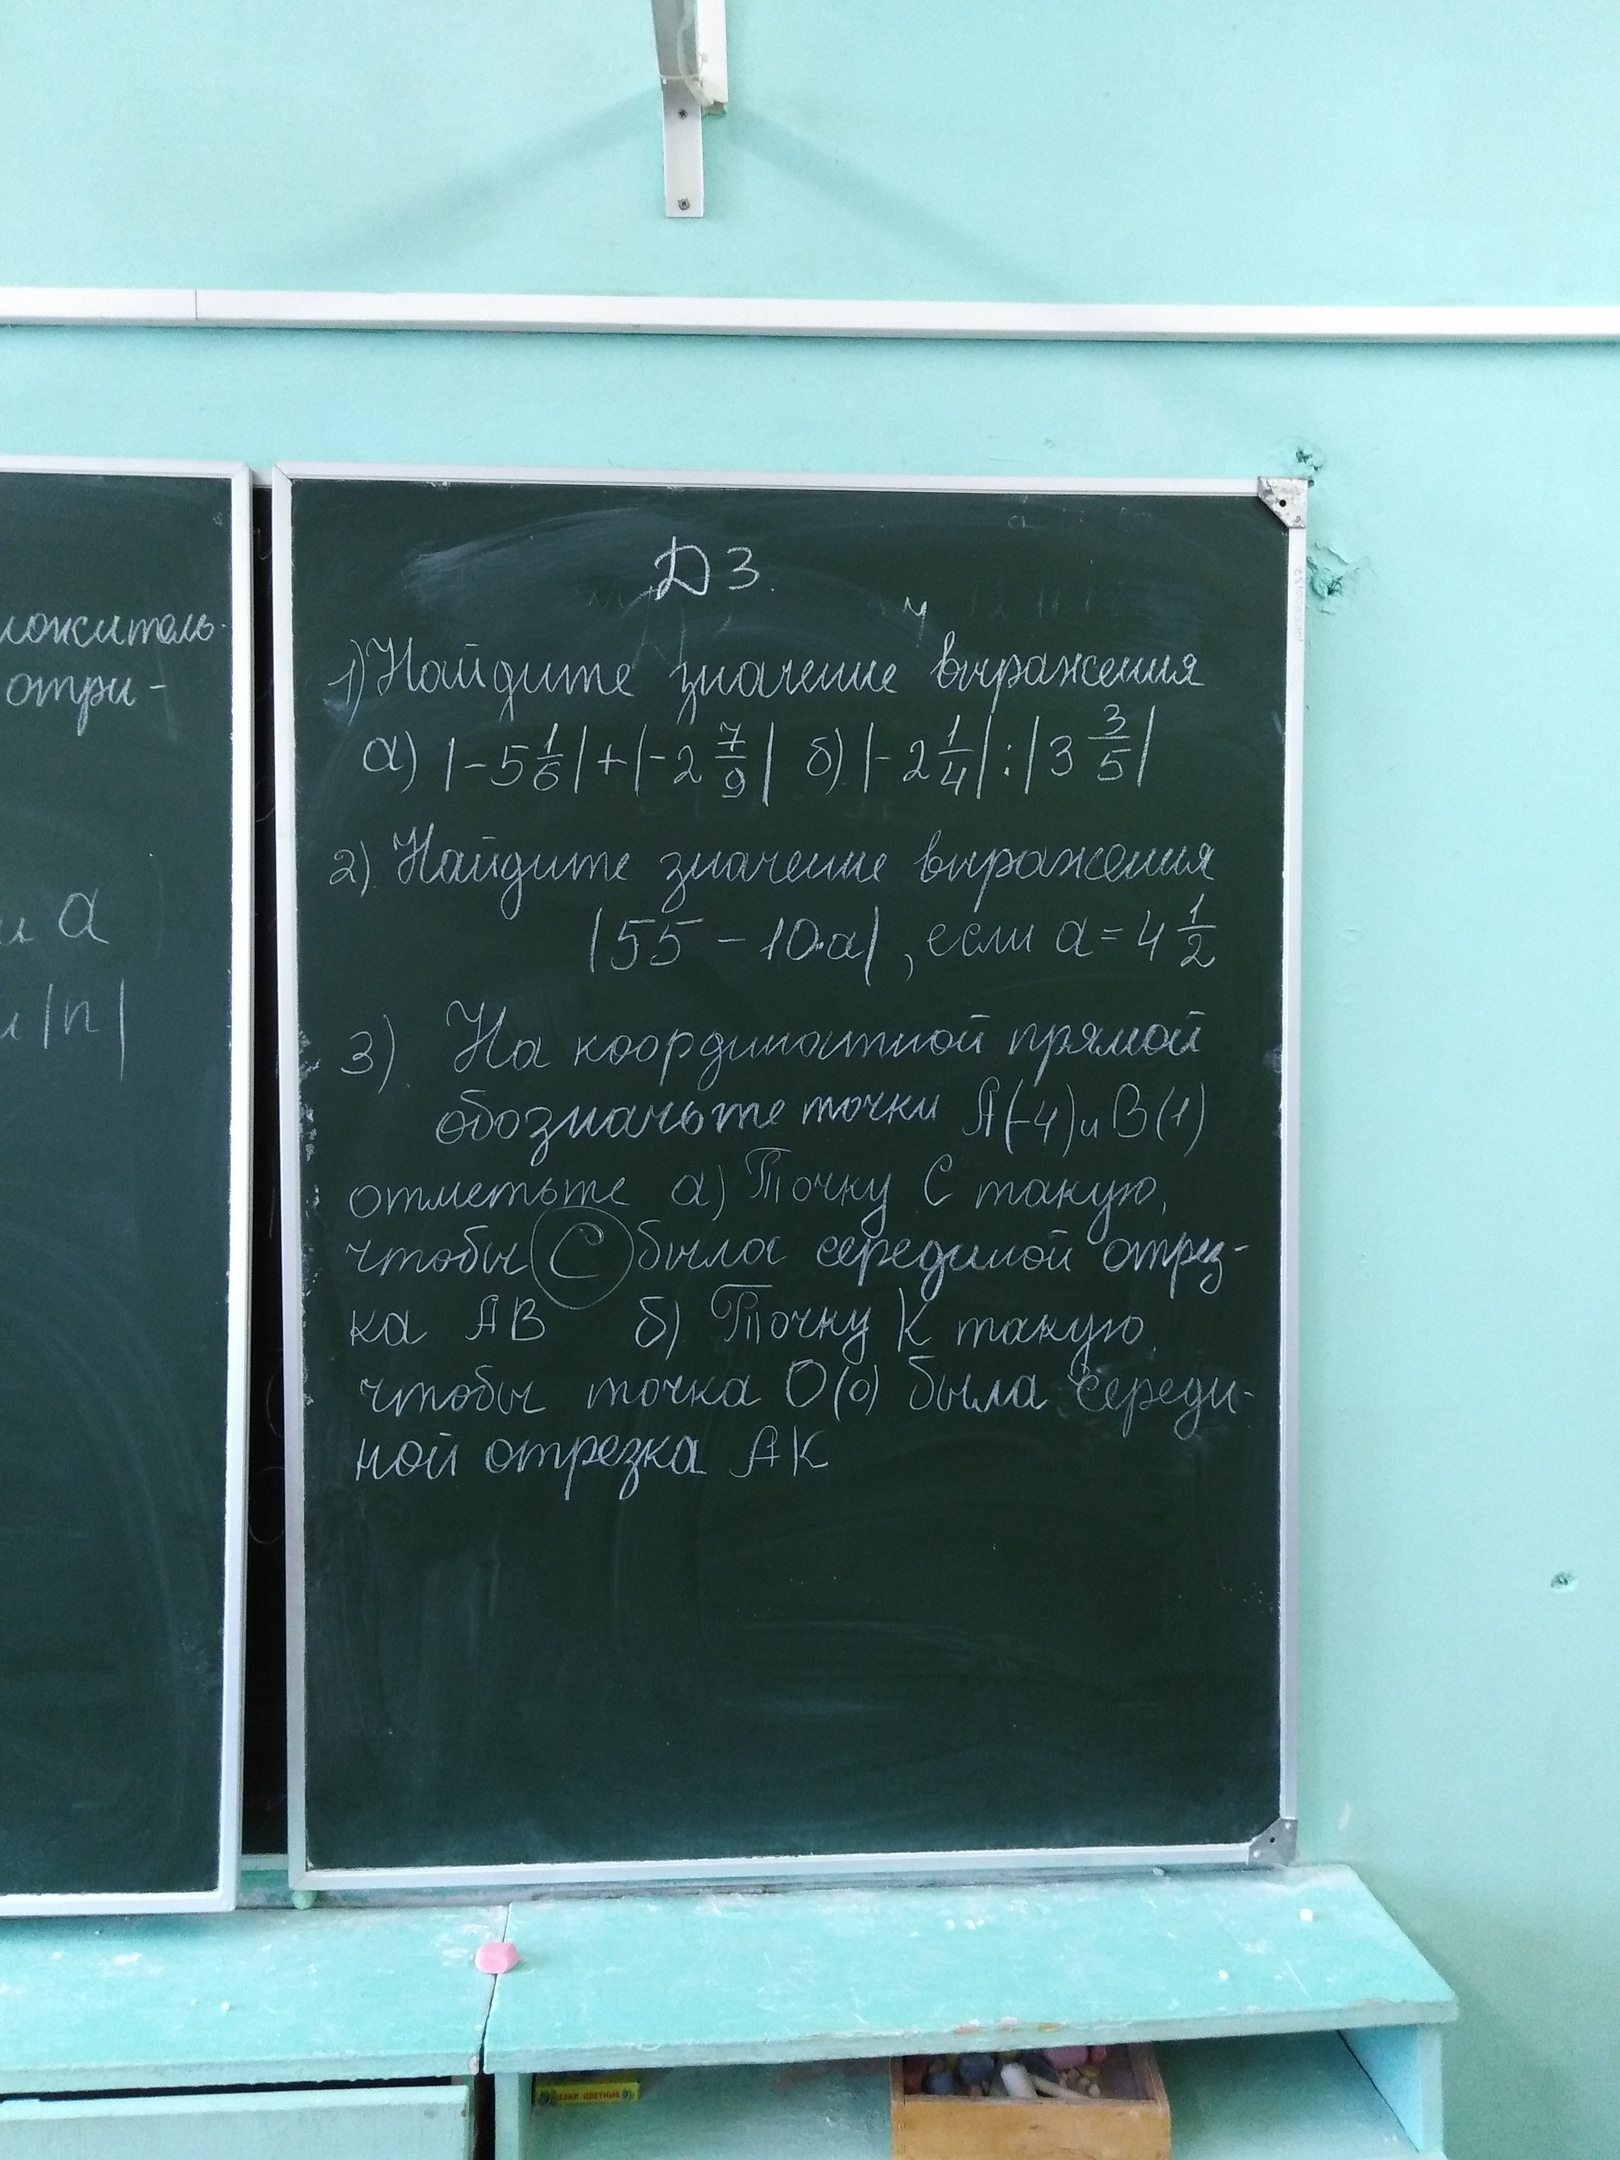 ложитель-
отри-
и а
и |n|
ДЗ.
1) Найдите значение выражения
а) |-5 1/6| + |-2 7/9| б) |-2 1/4| : |3 3/5|
2) Найдите значение выражения
|55 - 10·а|, если а = 4 1/2
3) На координатной прямой
обозначьте точки А(-4) и В(1)
отметьте а) Точку С такую,
чтобы С была серединой отрез-
ка АВ б) Точку К такую,
чтобы точка О(0) была середи-
ной отрезка АК